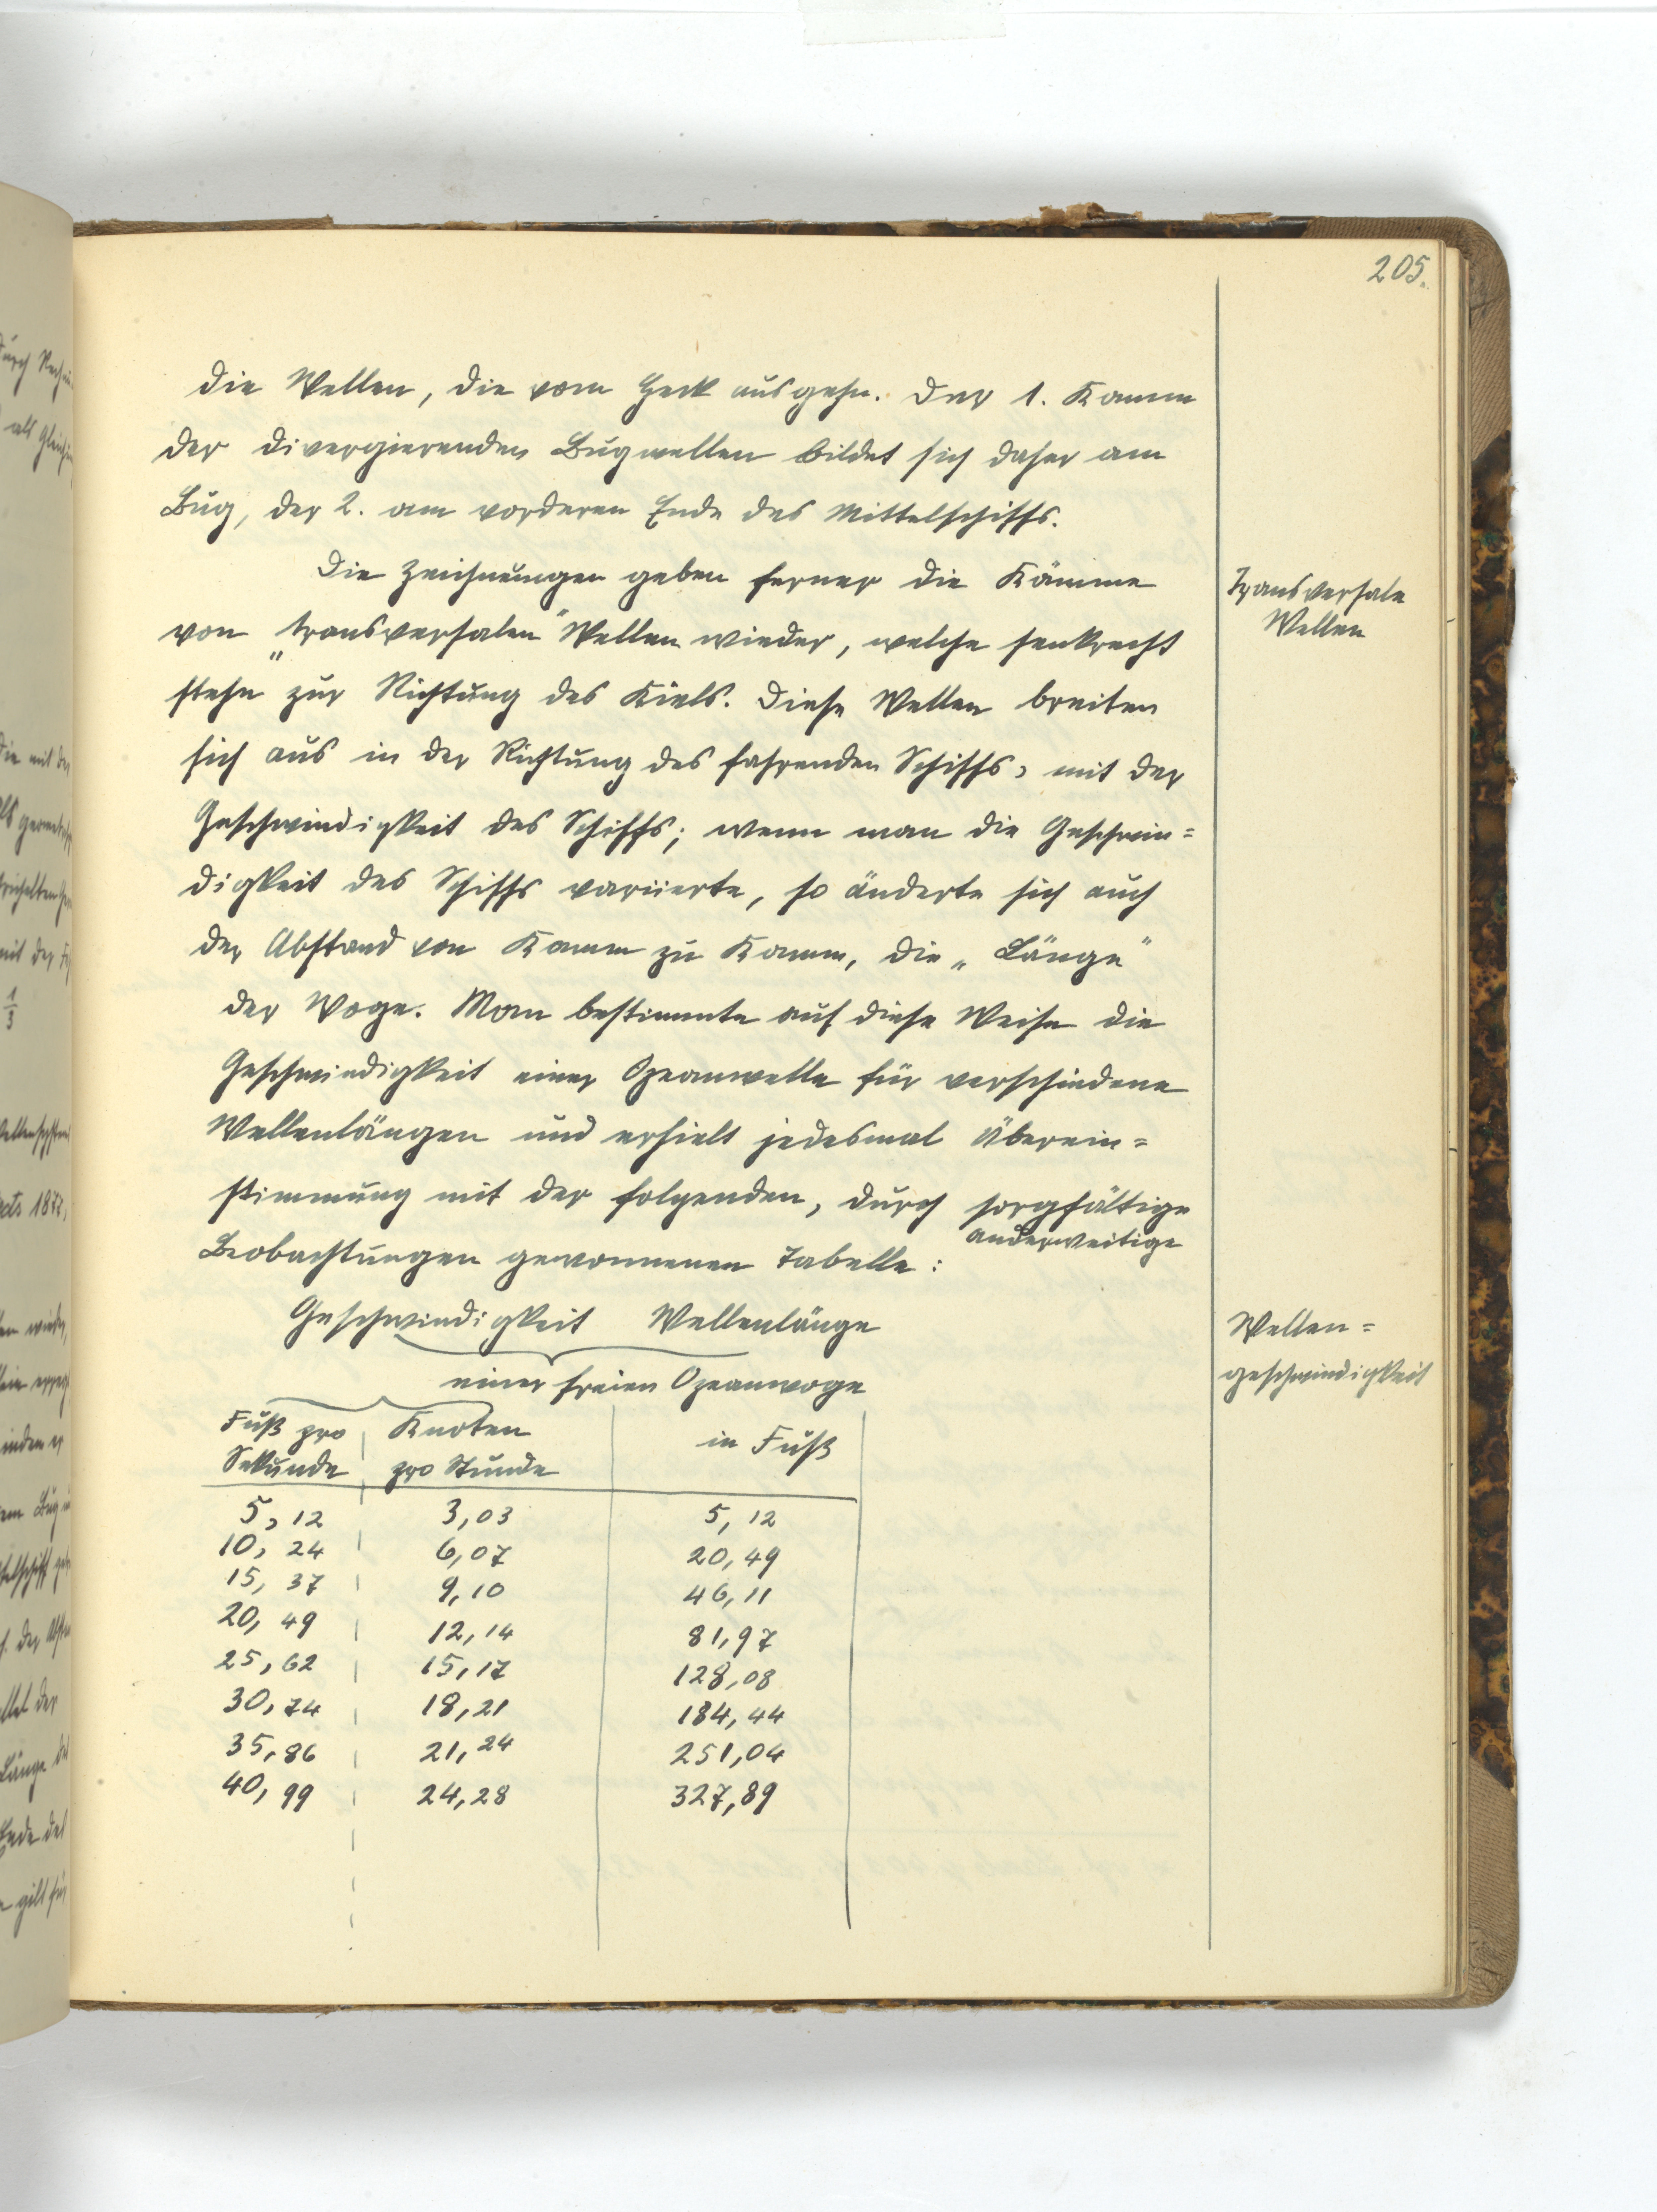 205.
die Wellen, die vom Heck ausgehn. Der 1. Kamm
der divergierenden Bugwellen bildet sich daher am
Bug, der 2. am vorderen Ende des Mittelschiffs.
Die Zeichnungen geben ferner die Kämme
von „transversalen“ Wellen wieder, welche senkrecht
stehn zur Richtung des Kiels. Diese Wellen breiten
sich aus in der Richtung des fahrenden Schiffs, mit der
Geschwindigkeit des Schiffs; wenn man die Geschwin=
digkeit des Schiffs variierte, so änderte sich auch
der Abstand von Kamm zu Kamm, die „Länge“
der Woge. Man bestimmte auf diese Weise die
Geschwindigkeit einer Ozeanwelle für verschiedene
Wellenlängen und erhielt jedesmal Überein=
stimmung mit der folgenden, durch sorgfältige
anderweitige
Beobachtungen gewonnenen Tabelle:
Geschwindigkeit Wellenlänge
einer freien Ozeanwoge
Fuß pro Knoten in Fuß
Sekunde pro Stunde
5,12 3,03 5,12
10,24 6,07 20,49
15,37 9,10 46,11
20,49 12,14 81,97
25,62 15,17 128,08
30,74 18,21 184,44
35,86 21,24 251,04
40,99 24,28 327,89
Transversale
Wellen
Wellen=
geschwindigkeit